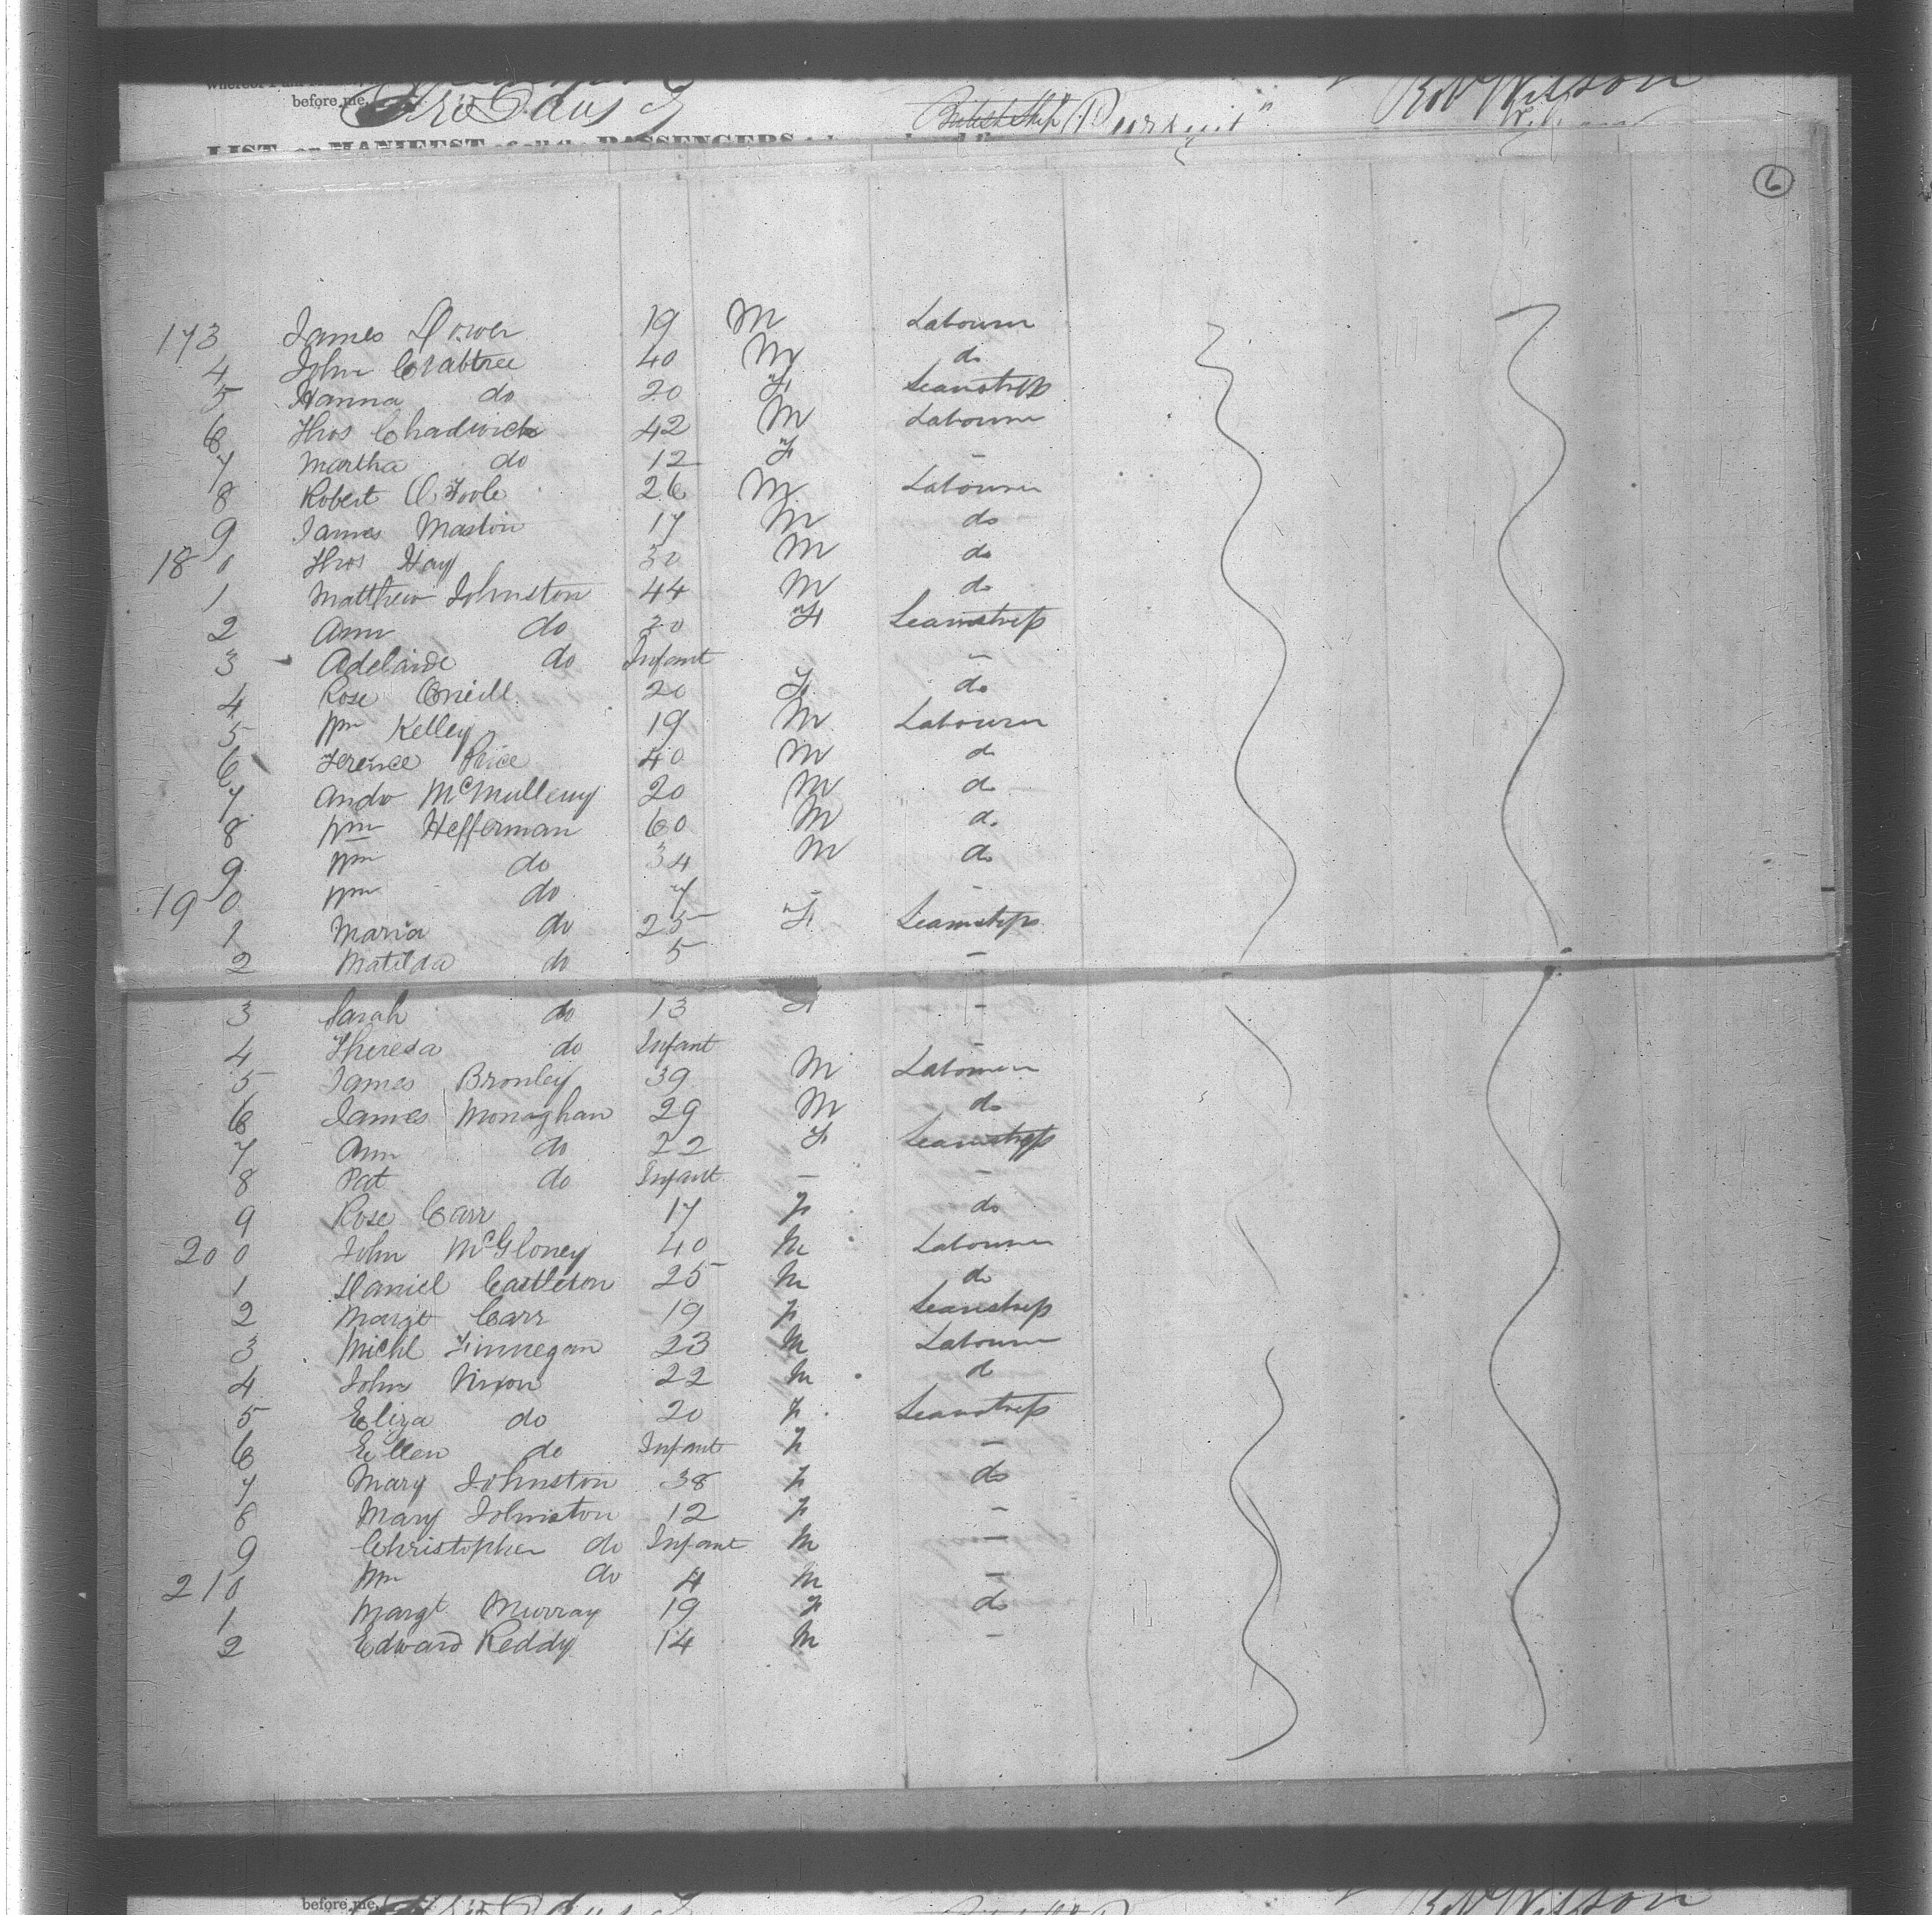 before me,
British Ship "Pursuit"
Rob Wilson
LIST or MANIFEST of all the PASSENGERS
6
173 James Dower 19 M Labourer
4 John Crabtree 40 M do
5 Hanna do 20 F Seamstress
6 Thos Chadwick 42 M Labourer
7 Martha do 12 F -
8 Robert O'Toole 26 M Labourer
9 James Maston 17 M do
180 Thos Hay 30 M do
1 Matthew Johnston 44 M do
2 Ann do 30 F Seamstress
3 Adelaide do Infant -
4 Rose Oneill 20 F do
5 Wm Kelley 19 M Labourer
6 Terence Price 40 M do
7 Andw McMulleny 20 M do
8 Wm Hefferman 60 M do
9 Wm do 34 M do
190 Wm do 7 - -
1 Maria do 25 F Seamstress
2 Matilda do 5 -
3 Sarah do 13 F -
4 Theresa do Infant -
5 James Bronley 39 M Labourer
6 James Monaghan 29 M do
7 Ann do 22 F Seamstress
8 Pat do Infant - -
9 Rose Carr 17 F do
200 John McGloney 40 M Labourer
1 Daniel Castleton 25 M do
2 Margt Carr 19 F Seamstress
3 Michl Finnegan 23 M Labourer
4 John Nixon 22 M do
5 Eliza do 20 F Seamstress
6 Ellen do Infant F -
7 Mary Johnston 38 F do
8 Mary Johnston 12 F -
9 Christopher do Infant M -
210 Wm do 4 M -
1 Margt Murray 19 F do
2 Edward Reddy 14 M -
before me,
Rob Wilson